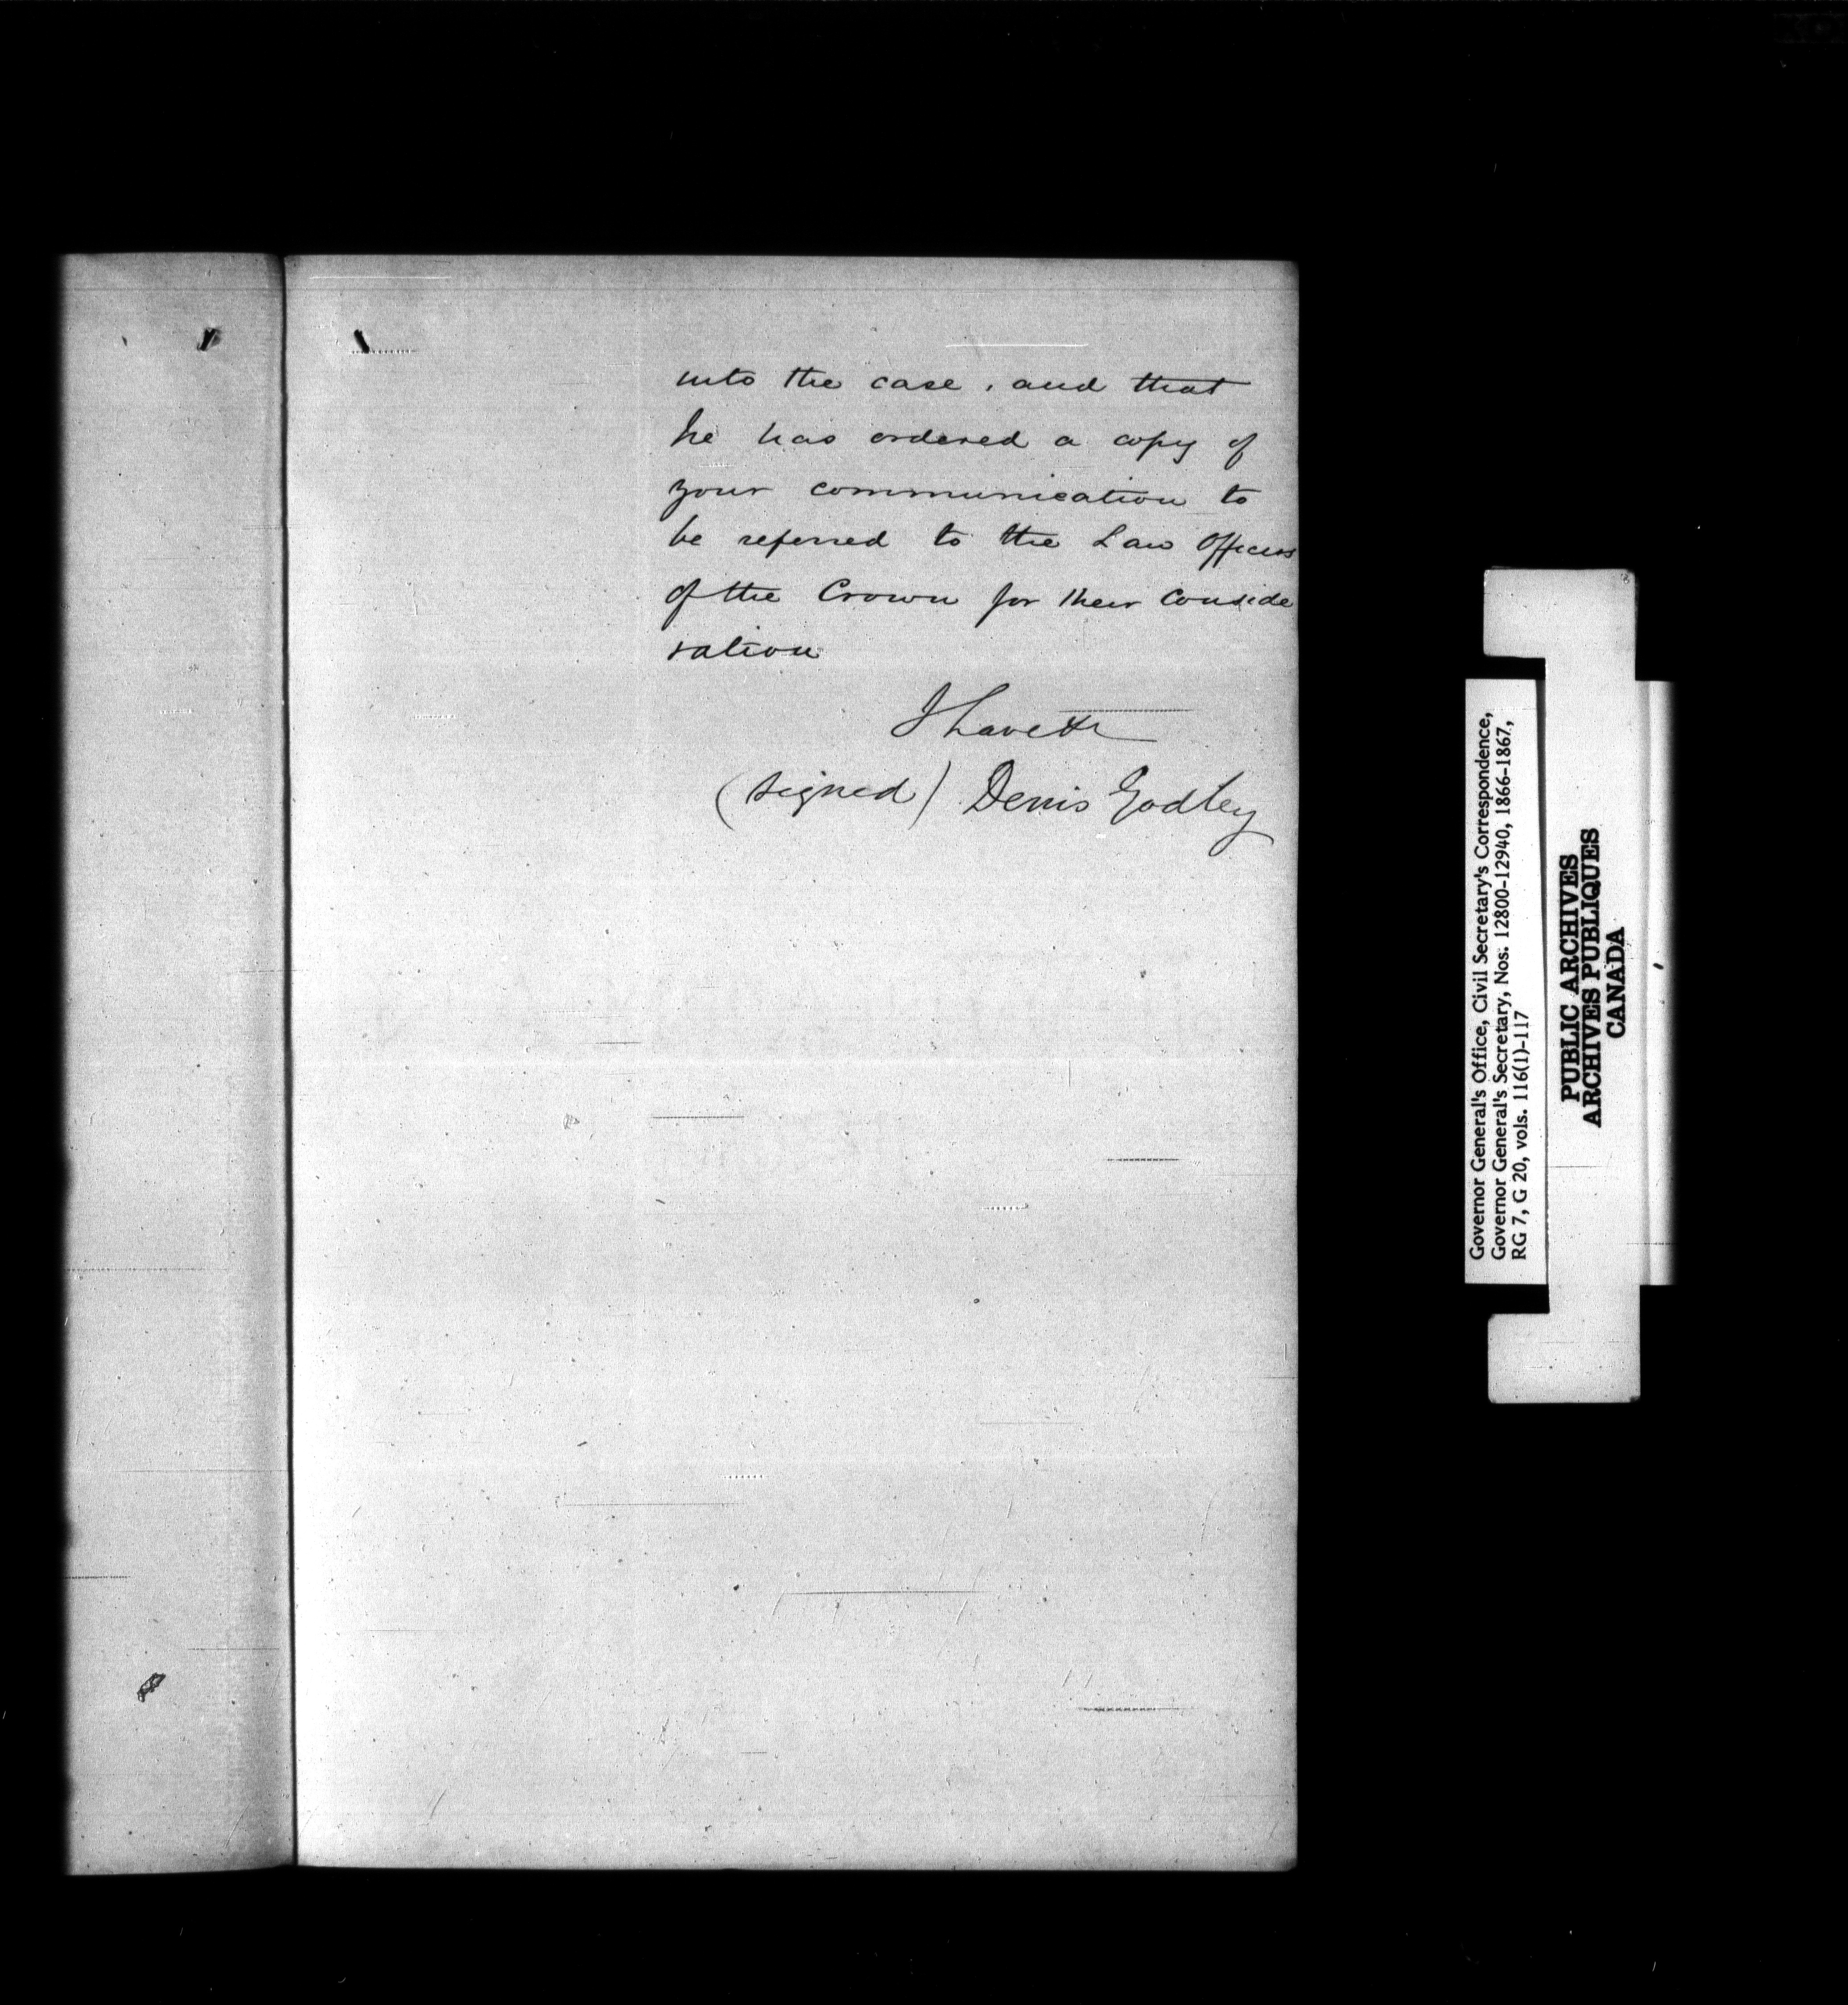 into the case, and that
he has ordered a copy of
your communication to
be referred to the Law Officers
of the Crown for their conside
ration
I have &c
(signed) Denis Godley
Governor General's Office, Civil Secretary's Correspondence,
Governor General's Secretary, Nos. 12800-12940, 1866-1867,
RG 7, G 20, vols. 116(1)-117
PUBLIC ARCHIVES
ARCHIVES PUBLIQUES
CANADA